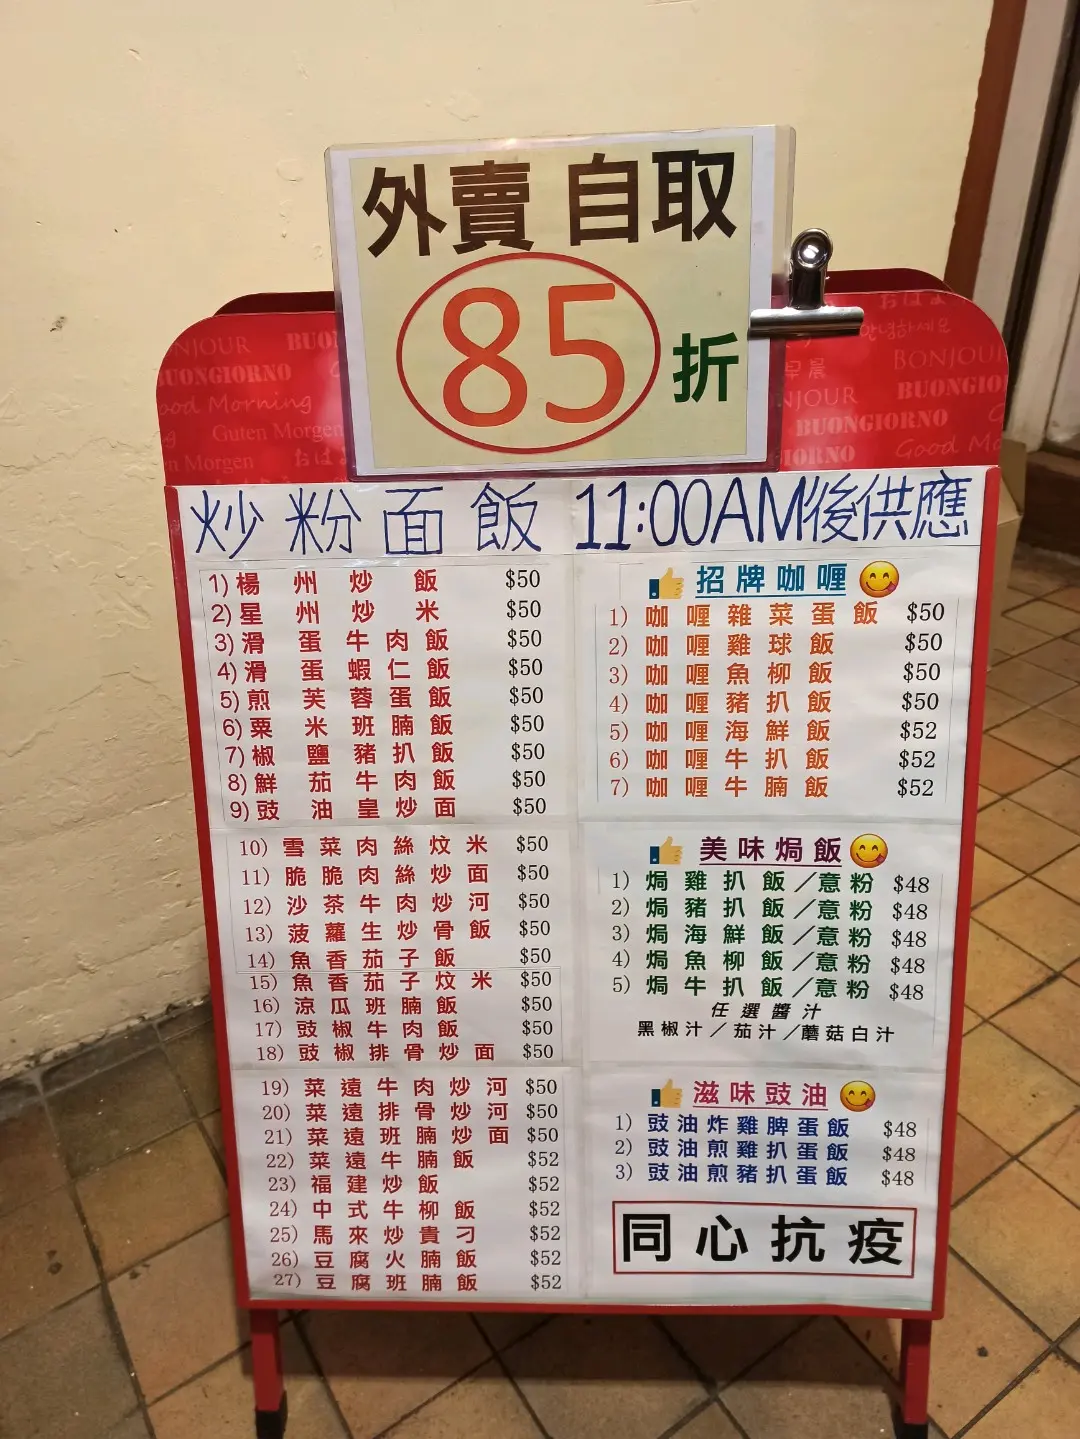 外賣 自取
85折
NJOUR
BUONGIORNO
Good Morning
Guten Morgen
n Morgen
안녕하세요
BONJOUR
早晨
BUONGIORNO
NJOUR
BUONGIORNO
IORNO
炒粉面飯
1) 楊州炒飯 $50
2) 星州炒米 $50
3) 滑蛋牛肉飯 $50
4) 滑蛋蝦仁飯 $50
5) 煎芙蓉蛋飯 $50
6) 粟米班腩飯 $50
7) 椒鹽豬扒飯 $50
8) 鮮茄牛肉飯 $50
9) 豉油皇炒面 $50
10) 雪菜肉絲炆米 $50
11) 脆脆肉絲炒面 $50
12) 沙茶牛肉炒河 $50
13) 菠蘿生炒骨飯 $50
14) 魚香茄子飯 $50
15) 魚香茄子炆米 $50
16) 涼瓜班腩飯 $50
17) 豉椒牛肉飯 $50
18) 豉椒排骨炒面 $50
19) 菜遠牛肉炒河 $50
20) 菜遠排骨炒河 $50
21) 菜遠班腩炒面 $50
22) 菜遠牛腩飯 $52
23) 福建炒飯 $52
24) 中式牛柳飯 $52
25) 馬來炒貴刁 $52
26) 豆腐火腩飯 $52
27) 豆腐班腩飯 $52
11:00AM後供應
招牌咖喱
1) 咖喱雜菜蛋飯 $50
2) 咖喱雞球飯 $50
3) 咖喱魚柳飯 $50
4) 咖喱豬扒飯 $50
5) 咖喱海鮮飯 $52
6) 咖喱牛扒飯 $52
7) 咖喱牛腩飯 $52
美味焗飯
1) 焗雞扒飯/意粉 $48
2) 焗豬扒飯/意粉 $48
3) 焗海鮮飯/意粉 $48
4) 焗魚柳飯/意粉 $48
5) 焗牛扒飯/意粉 $48
任選醬汁
黑椒汁/茄汁/蘑菇白汁
滋味豉油
1) 豉油炸雞脾蛋飯 $48
2) 豉油煎雞扒蛋飯 $48
3) 豉油煎豬扒蛋飯 $48
同心抗疫